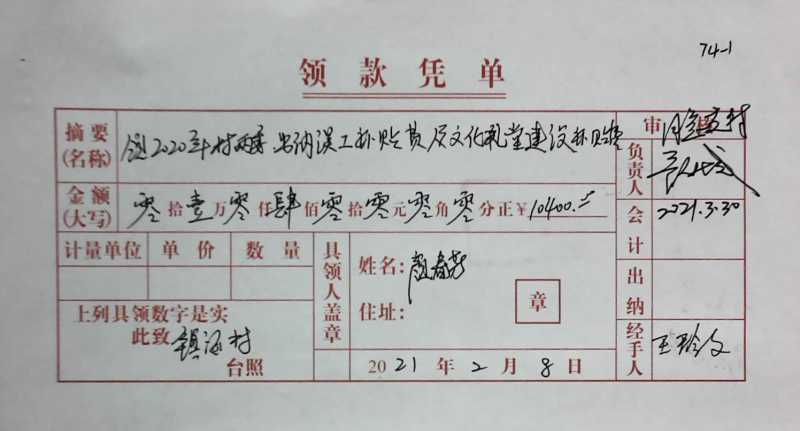 74-1
领款凭单
摘要(名称) 领2020年村两委 出纳误工补贴费及文化礼堂建设补贴 审
金额(大写) 零拾壹万零仟肆佰零拾零元零角零分正¥10400.=
负责人
会计 2021.3.30
计量单位 单价 数量
具领人盖章
姓名: 春芬
住址: 章
出纳
上列具领数字是实
此致 镇 村
台照
2021年2月8日
经手人 王玲文